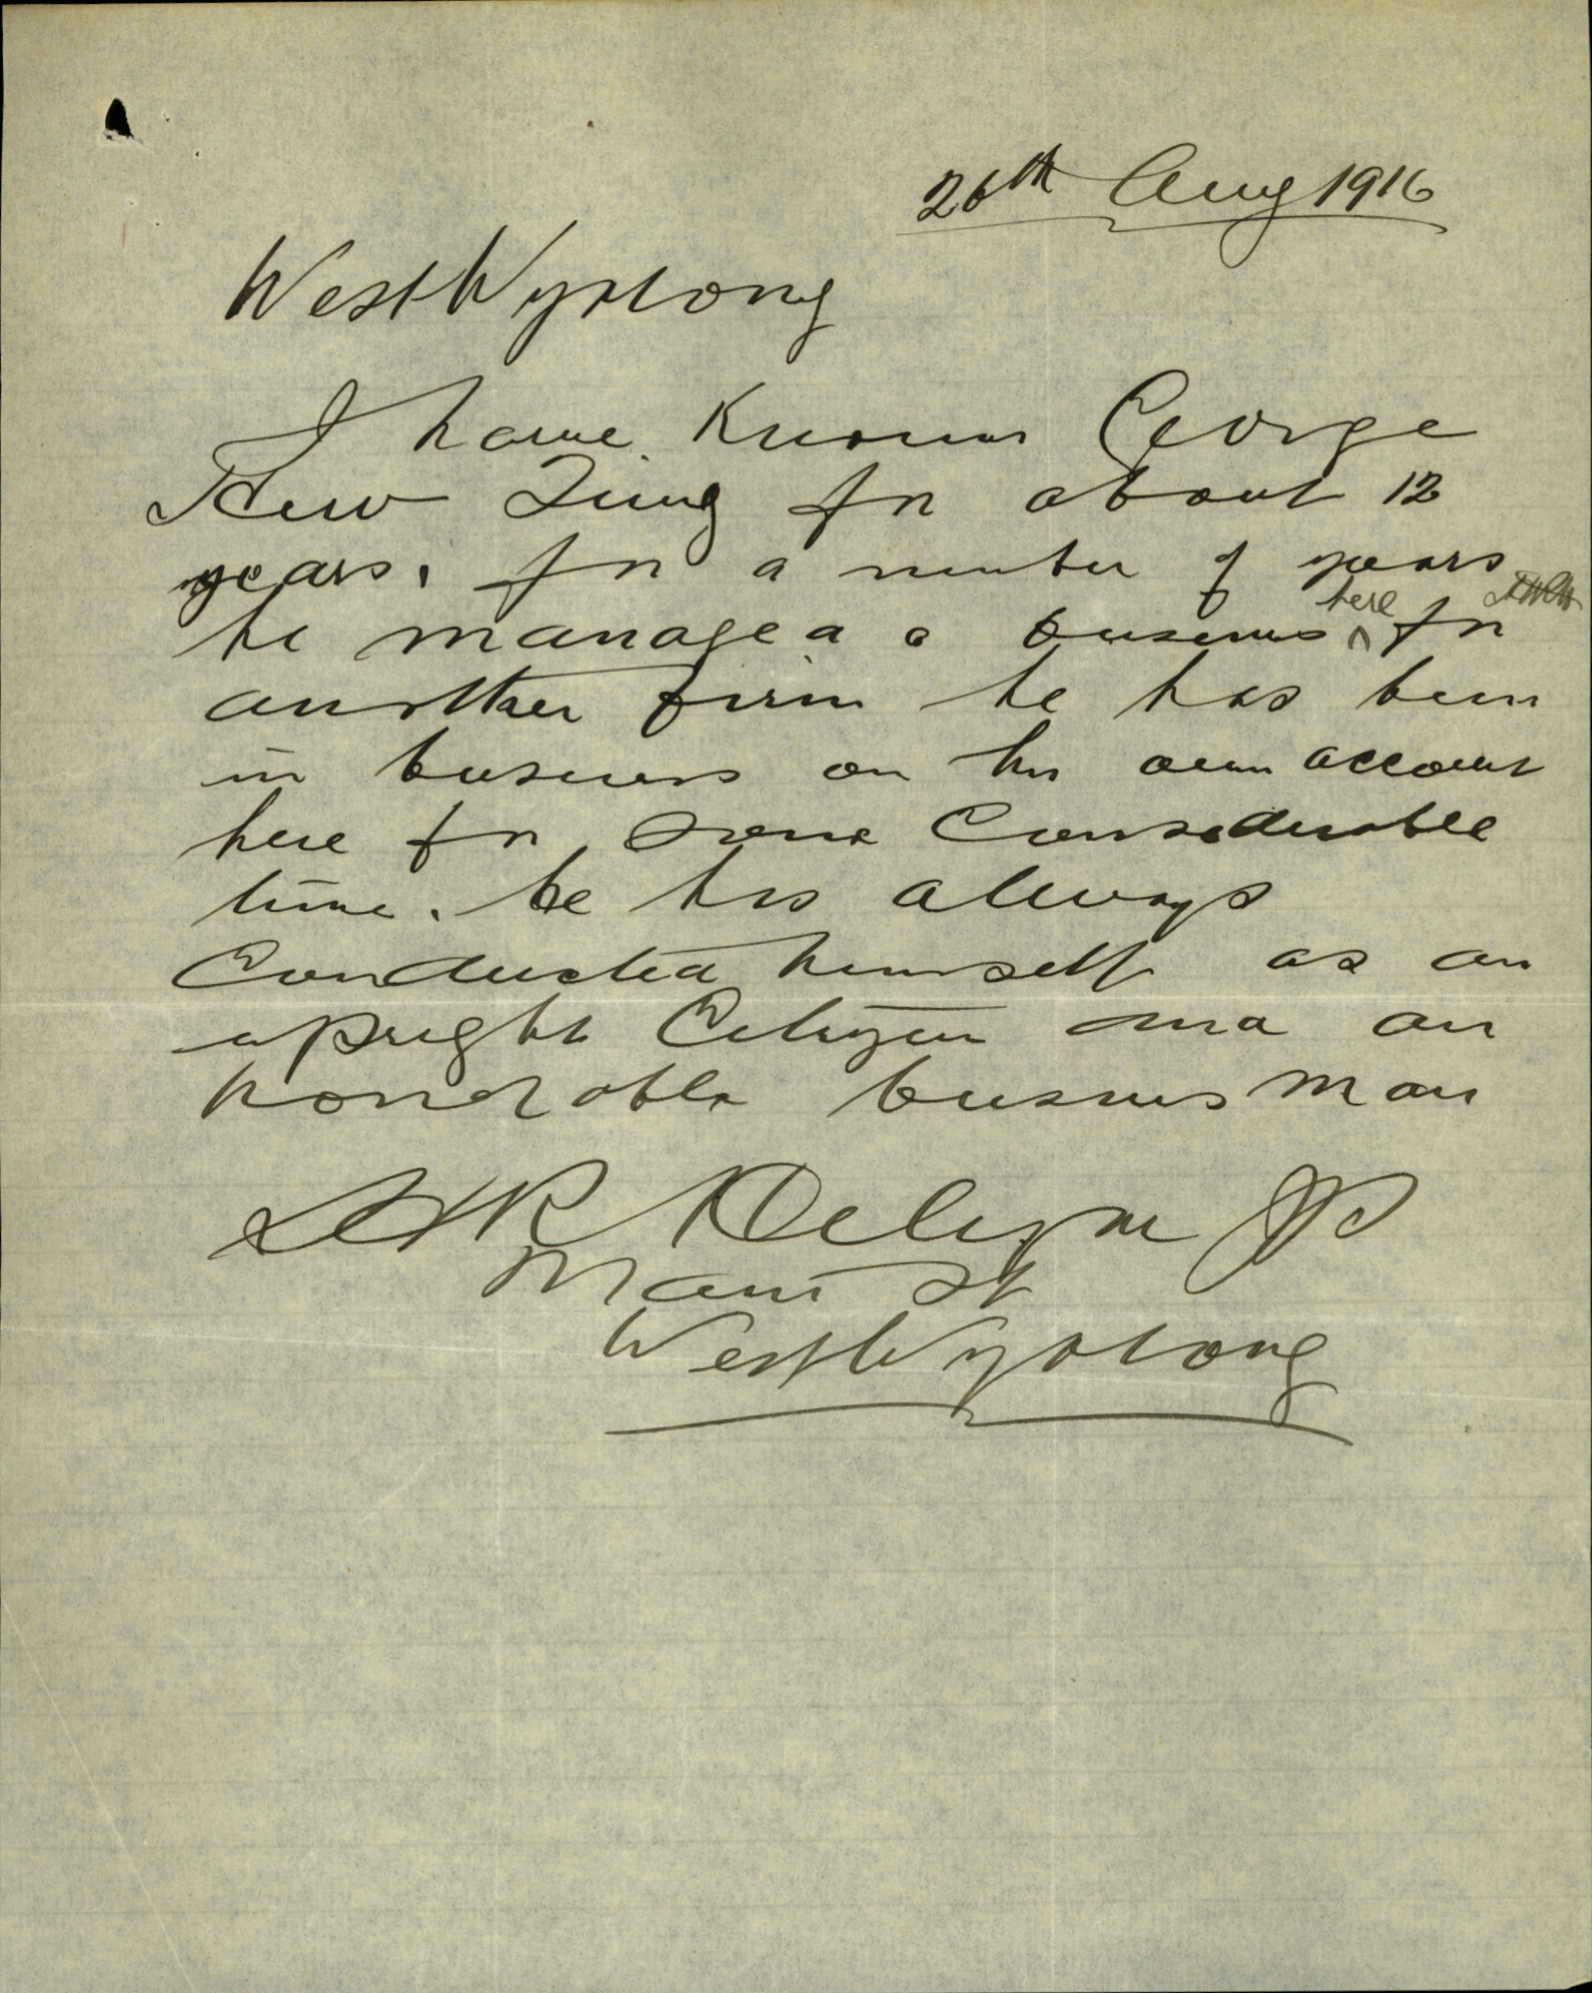 26th Aug 1916
West Wyalong
I have known George
Hew Ting for about 12
years. for a number of years
he managed a business here for
another firm he has been
in business on his own account
here for some considerable
time. he has always
conducted himself as an
upright Citizen and an
honorable business man
JP
Main St
West Wyalong